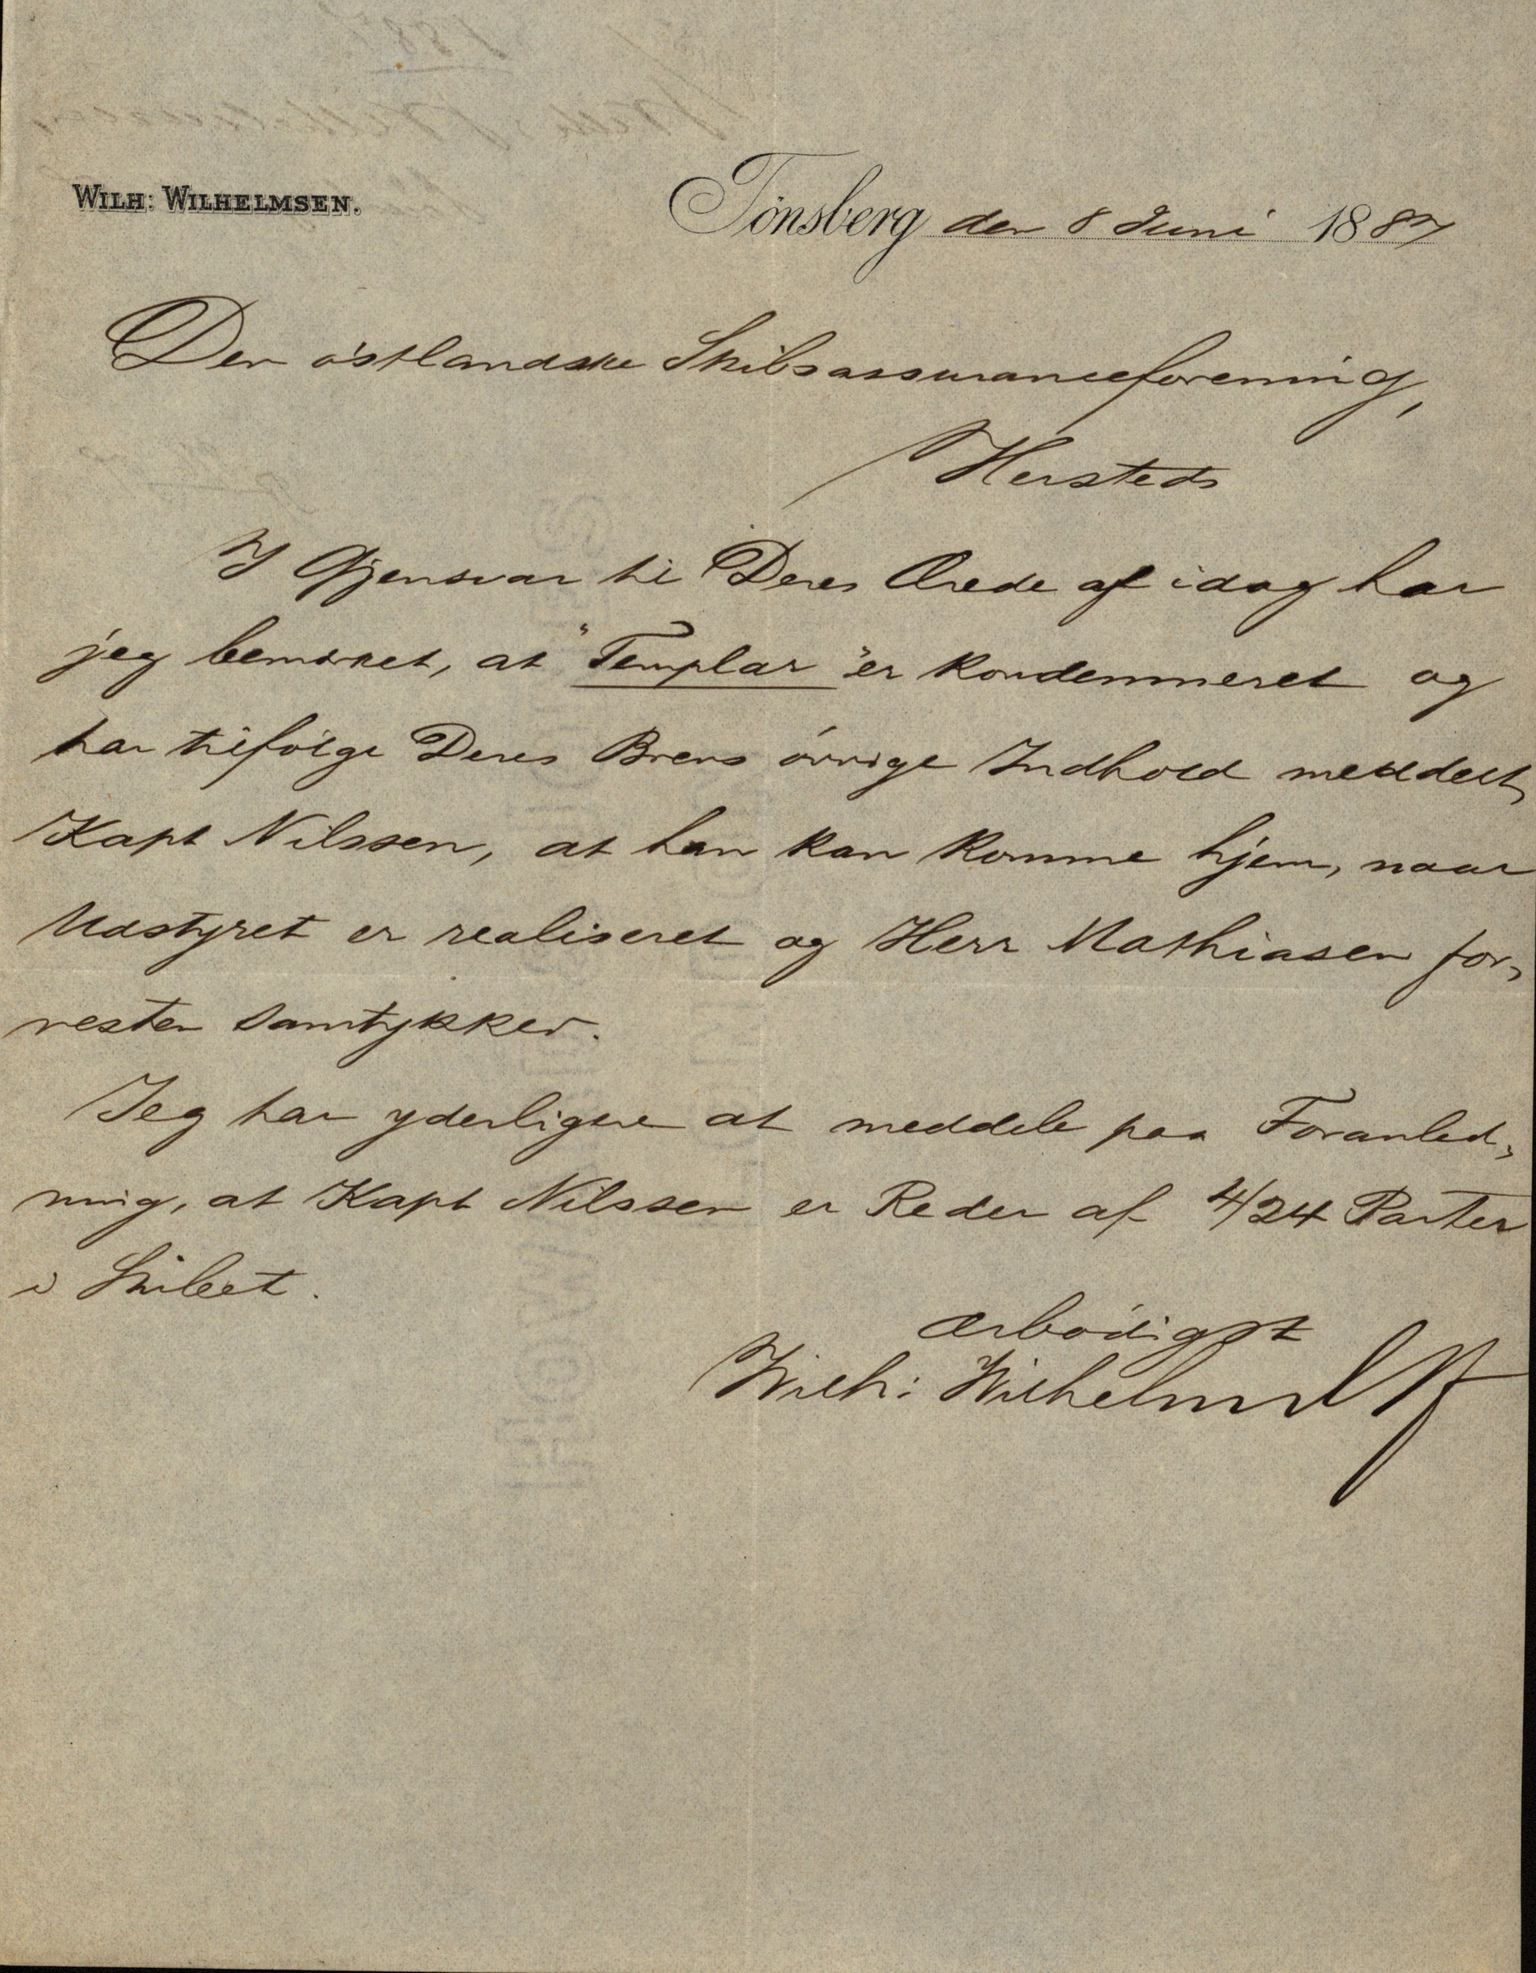 WILH: WILHELMSEN.
Tönsberg den 8 Juni 1887
Den östlandske Skibsassuranceforening,
Hersteds
I Gjensvar til Deres Ærede af idag har
jeg bemærket, at "Templar" er kondemneret og
har tilfölge Deres Brevs övrige Indhold meddelt,
Kapt Nilssen, at han kan komme hjem, naar
Udstyret er realiseret og Herr Mathiasen for,
resten samtykker.
Jeg har yderligere at meddele paa Foranled,
ning, at Kapt Nilssen er Reder af 4/24 Parter
i Skibet.
Ærbödigst
Wilh: Wilhelmsen